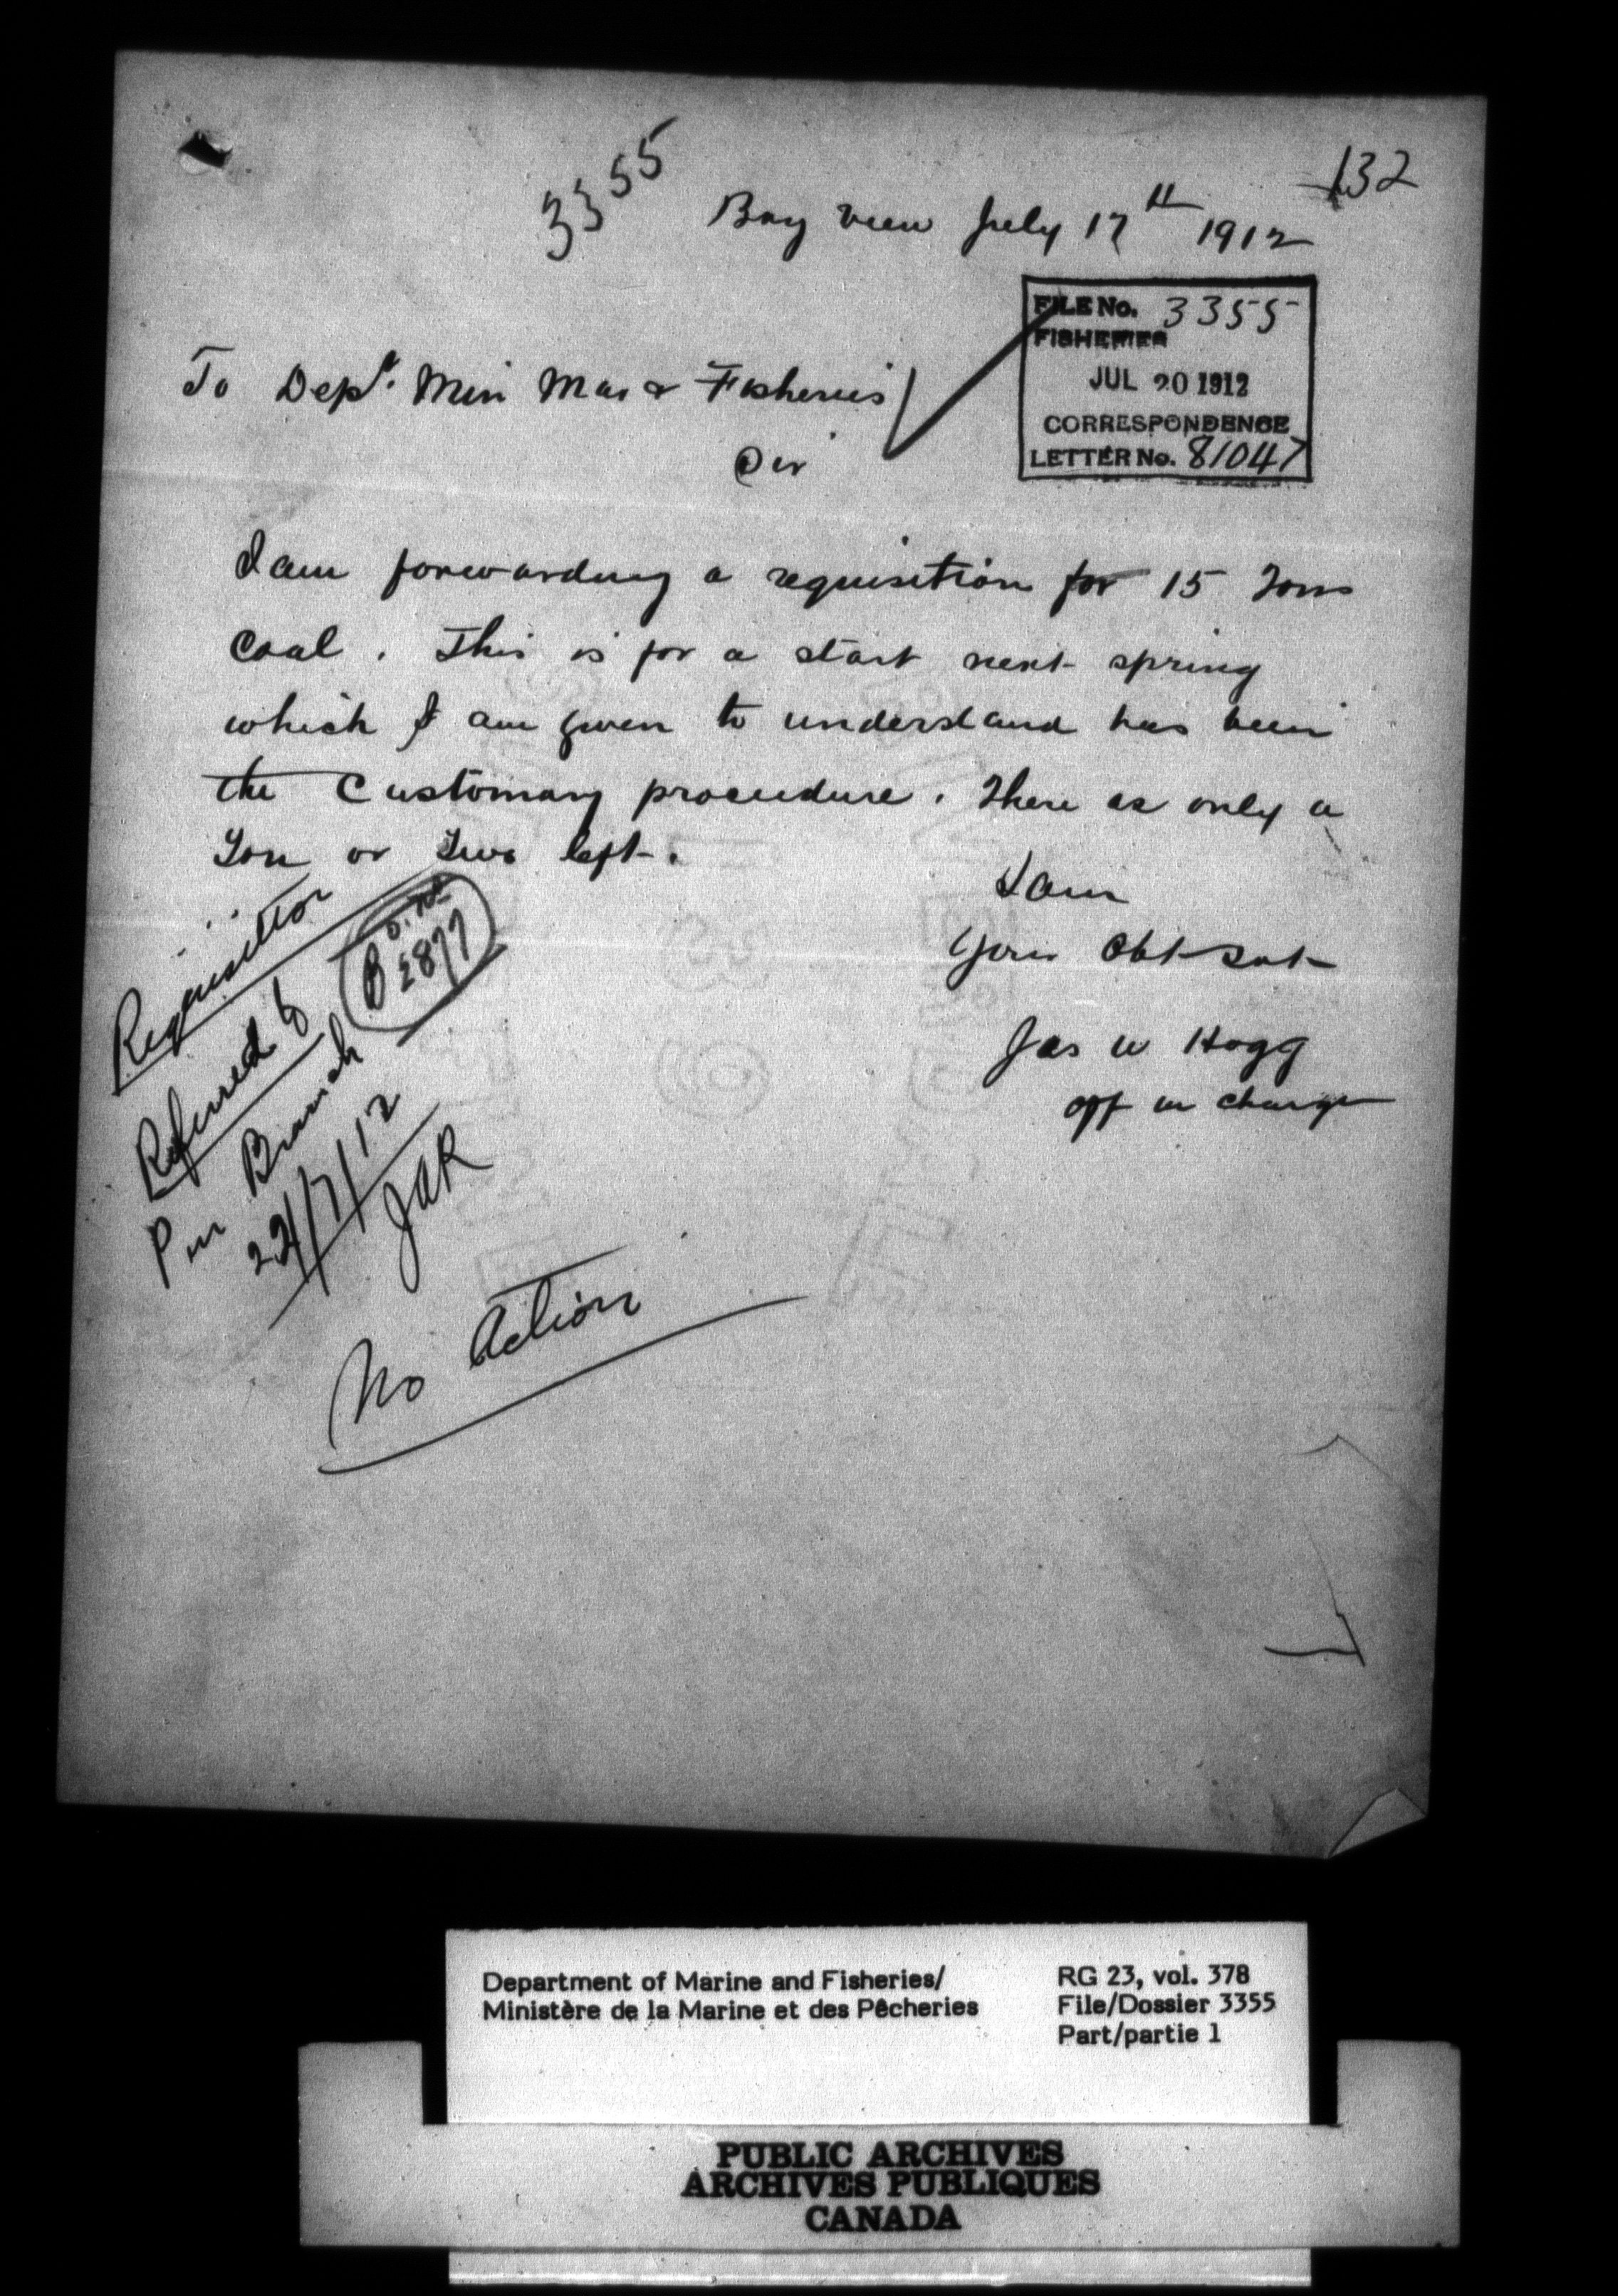 3355
132
Bay View July 17th 1912
FILE No. 3355
FISHERIES
JUL 20 1912
CORRESPONDENCE
LETTER No. 81047
To Dept. Min Mar & Fisheries
Sir
I am forwarding a requisition for 15 Tons
Coal. This is for a start next spring
which I am given to understand has been
the Customary proceedure. There is only a
Ton or Two left.
I am
Your Obt Svt
Jas W Hogg
off in charge
Requisition
Referred to
P Branch
22/7/12
JAR
No Action
Department of Marine and Fisheries/
Ministère de la Marine et des Pêcheries
RG 23, vol. 378
File/Dossier 3355
Part/partie 1
PUBLIC ARCHIVES
ARCHIVES PUBLIQUES
CANADA